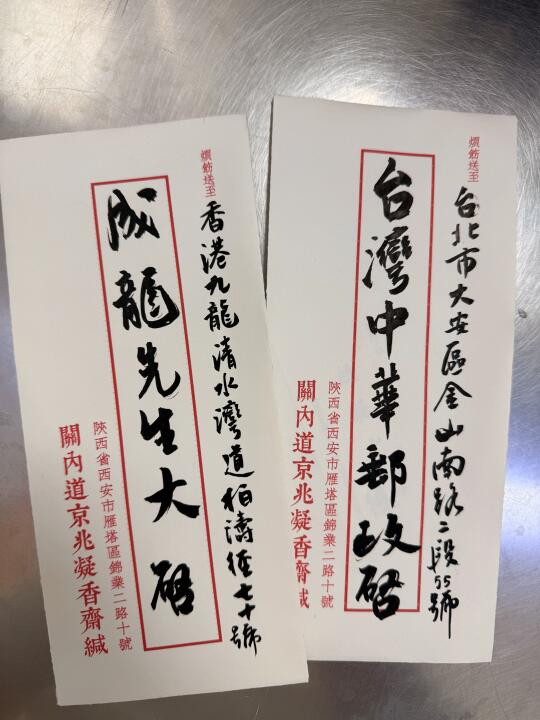 煩飭送至
香港九龍清水灣道柏濤徑七十號
成龍先生大啓
陝西省西安市雁塔區錦業二路十號
關內道京兆凝香齋緘
煩飭送至
台北市大安區金山南路二段55號
台灣中華郵政啓
陝西省西安市雁塔區錦業二路十號
關內道京兆凝香齋緘